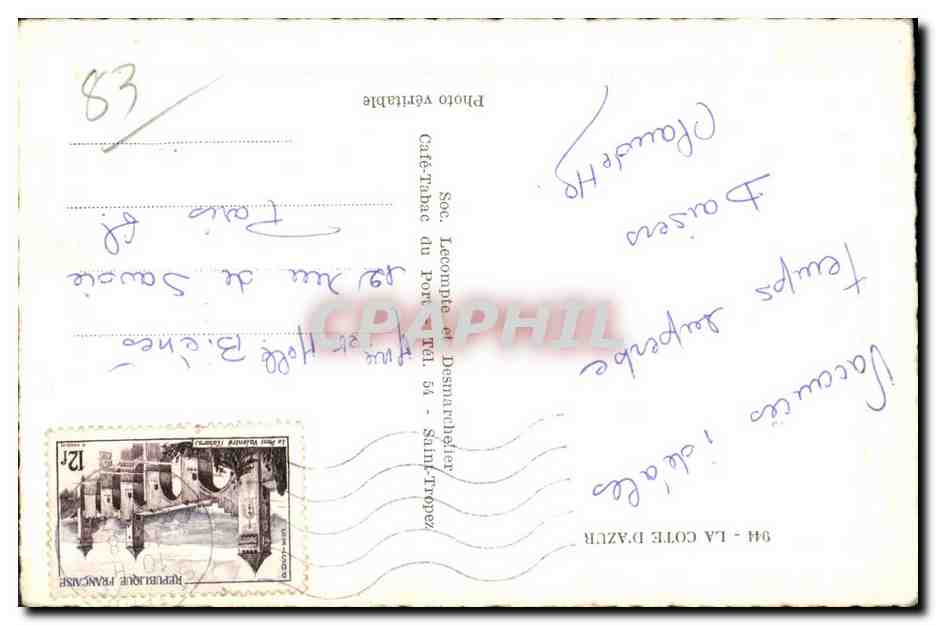 944 - LA COTE D'AZUR
Vacances idéales
temps superbe
Baisers
Claudette
Photo véritable
Soc. Lecompte et Desmarchelier
Café-Tabac du Port - Tél. 54 - Saint-Tropez
REPUBLIQUE FRANÇAISE
12F
Le Pont Valentré (Cahors)
POSTES
et Melle
12 rue de Savoie
Paris 6e
83
CPAPHIL